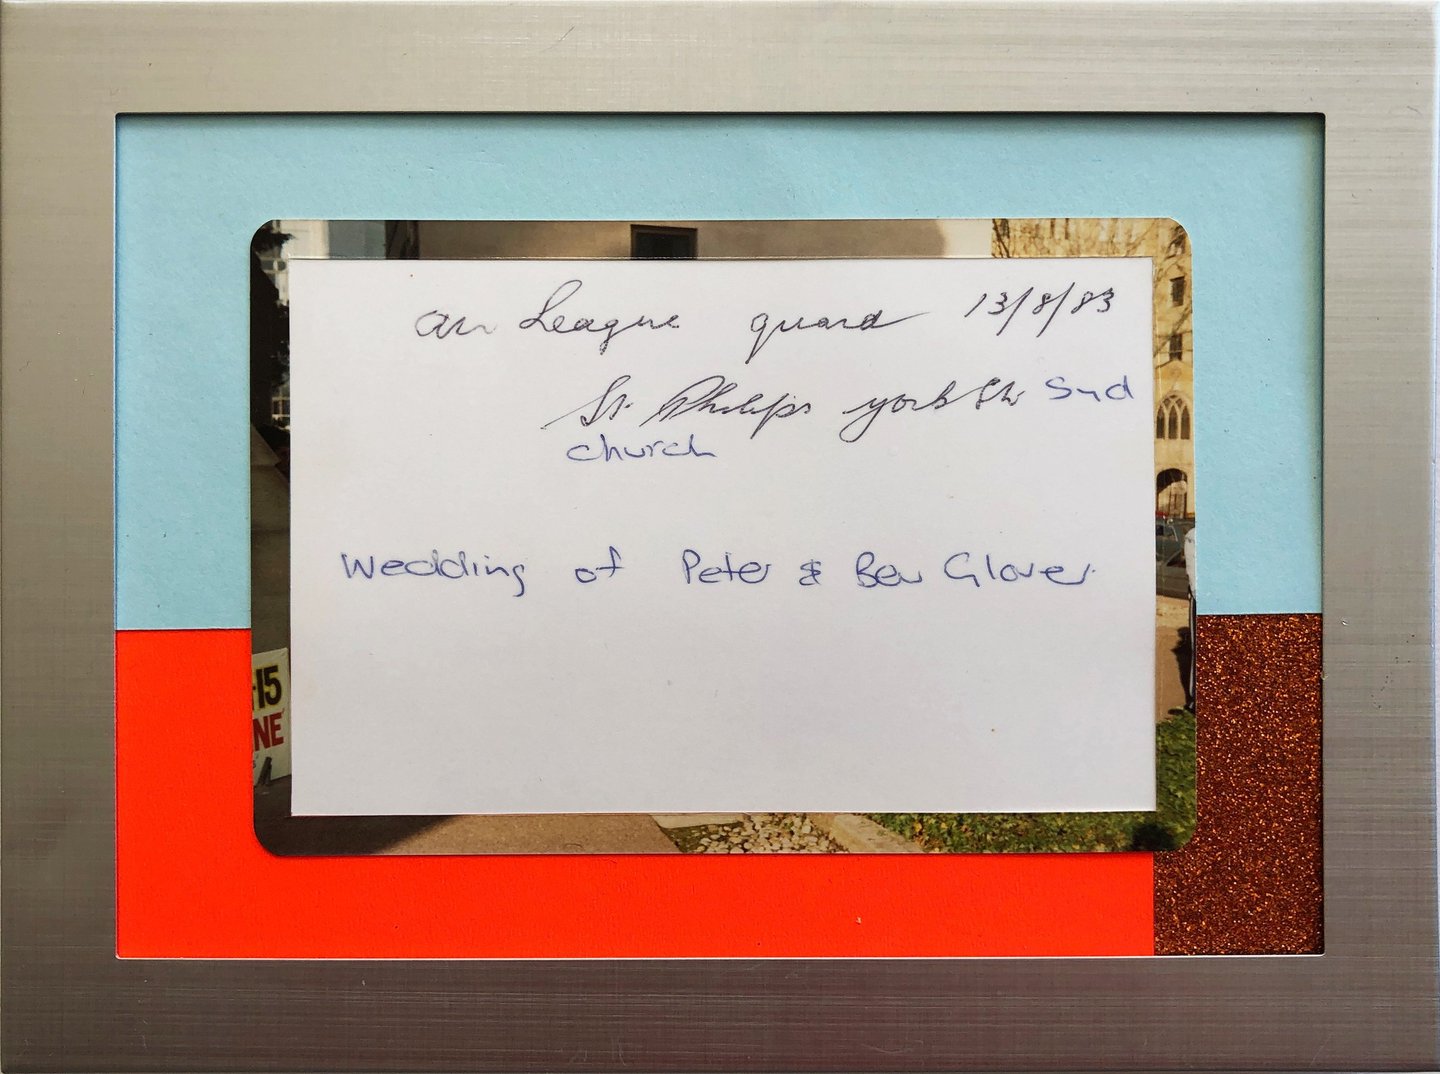 Air League guard 13/8/83
St. Philips york St. Syd
church
Wedding of Peter & Bev Glover
-15
NE